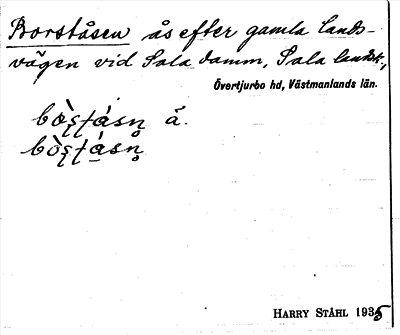 Borståsen ås efter gamla lands-
vägen vid Sala damm, Sala landsk.,
Övertjurbo hd, Västmanlands län.
bòʂʈásn̥ å.
bòʂʈásn̥
HARRY STÅHL 1935